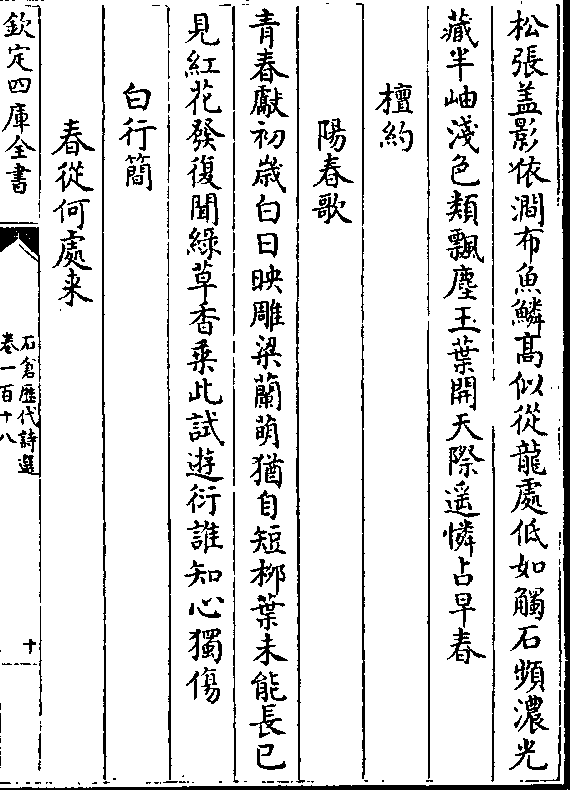 松張盖影依澗布魚鱗髙似從龍處低如觸石頻濃光
藏半岫淺色類飄塵玉葉開天際遥憐占早春
檀約
陽春歌
青春獻初嵗白日映雕梁蘭萌猶自短柳葉未能長已
見紅花發復聞綠草香乗此試遊衍誰知心獨傷
白行簡
春從何處来
欽定四庫全書
石倉歴代詩選
卷一百十八
十